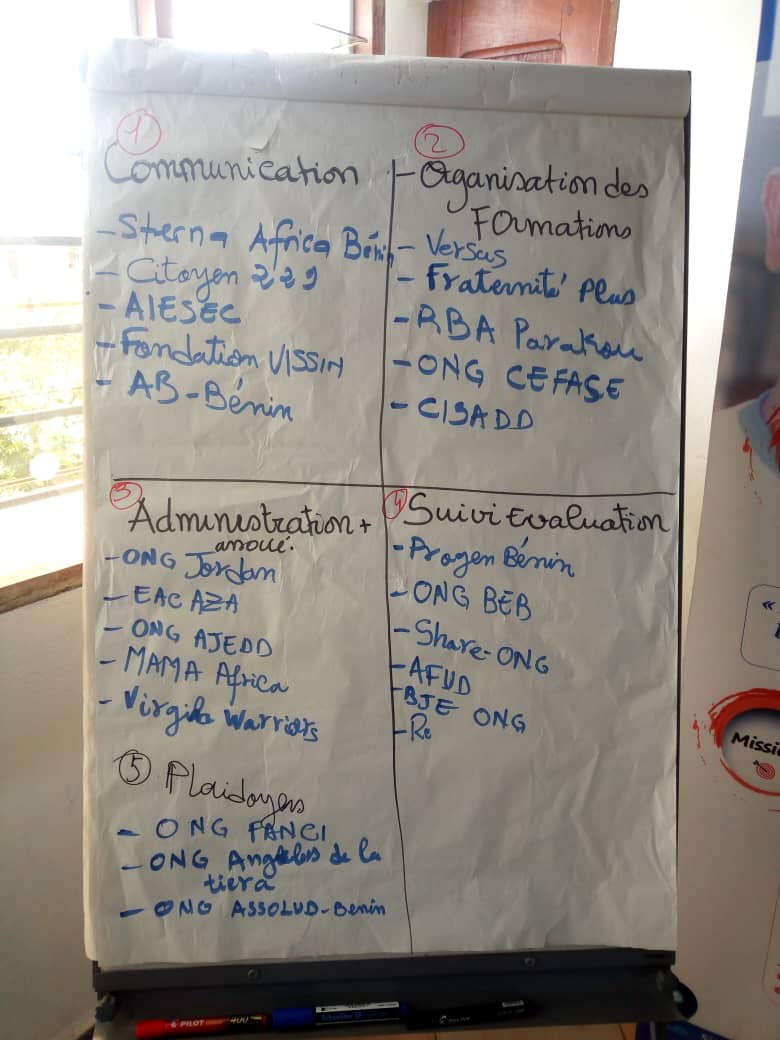 1
Communication
- Sterna Africa Bénin
- Citoyen 229
- AIESEC
- Fondation VISSIN
- AB-Bénin
2
- Organisation des
Formations
- Versus
- Fraternité Plus
- RBA Parakou
- ONG CEFASE
- CISADD
3
Administration +
- ONG Jordan
- EAC AZA
- ONG AJEDD
- MAMA Africa
- Virgile Warriors
4
Suivi Evaluation
- Progen Bénin
- ONG BEB
- Share-ONG
- AFUD
- BJE ONG
- Re
5 Plaidoyers
- ONG FANCI
- ONG de la
tiera
- ONG ASSOLUD-Benin
PILOT 400
«
Missi